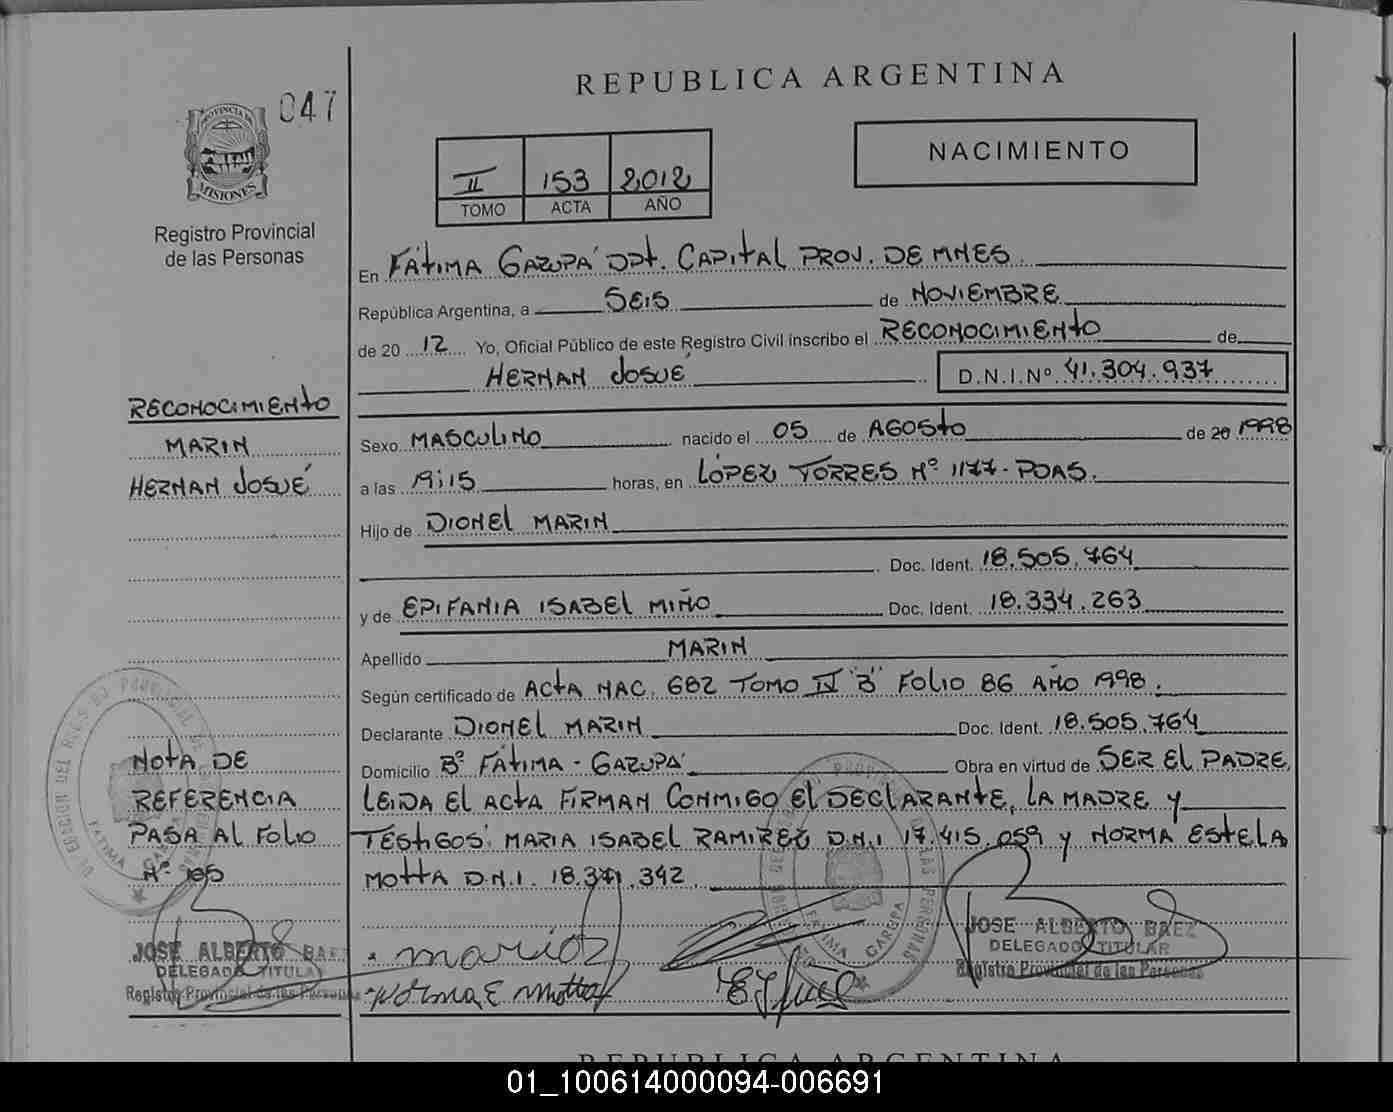 REPUBLICA ARGENTINA
047
PROVINCIA DE
MISIONES
Registro Provincial
de las Personas
II 153 2012
TOMO ACTA AÑO
NACIMIENTO
En FÁTIMA GARUPÁ DPT. CAPITAL PROV. DE MNES.
República Argentina, a SEIS de NOVIEMBRE
de 20 12 Yo, Oficial Público de este Registro Civil inscribo el RECONOCIMIENTO de
HERNAN JOSUÉ D.N.I.Nº 41.304.937
RECONOCIMIENTO
MARIN
HERNAN JOSUÉ
Sexo MASCULINO nacido el 05 de AGOSTO de 20 1998
a las 19:15 horas, en LÓPEZ TORRES Nº 1177-POAS.
Hijo de DIONEL MARIN
Doc. Ident. 18.505.764
y de EPIFANIA ISABEL MIÑO Doc. Ident. 18.334.263
Apellido MARIN
Según certificado de ACTA NAC. 682 TOMO IV "B" FOLIO 86 AÑO 1998.
Declarante DIONEL MARIN Doc. Ident. 18.505.764
Domicilio Bº FÁTIMA - GARUPÁ Obra en virtud de SER EL PADRE
LEIDA EL ACTA FIRMAN CONMIGO EL DECLARANTE, LA MADRE Y
TESTIGOS: MARIA ISABEL RAMIREZ D.N.I 17.415.059 Y NORMA ESTELA
MOTTA D.N.I. 18.371.342
NOTA DE
REFERENCIA
PASA AL FOLIO
Nº 105
JOSE ALBERTO BAEZ
DELEGADO TITULAR
Registro Provincial de las Personas
Norma E Motta
JOSE ALBERTO BAEZ
DELEGADO TITULAR
Registro Provincial de las Personas
FATIMA GARUPA
REPUBLICA ARGENTINA
01_100614000094-006691